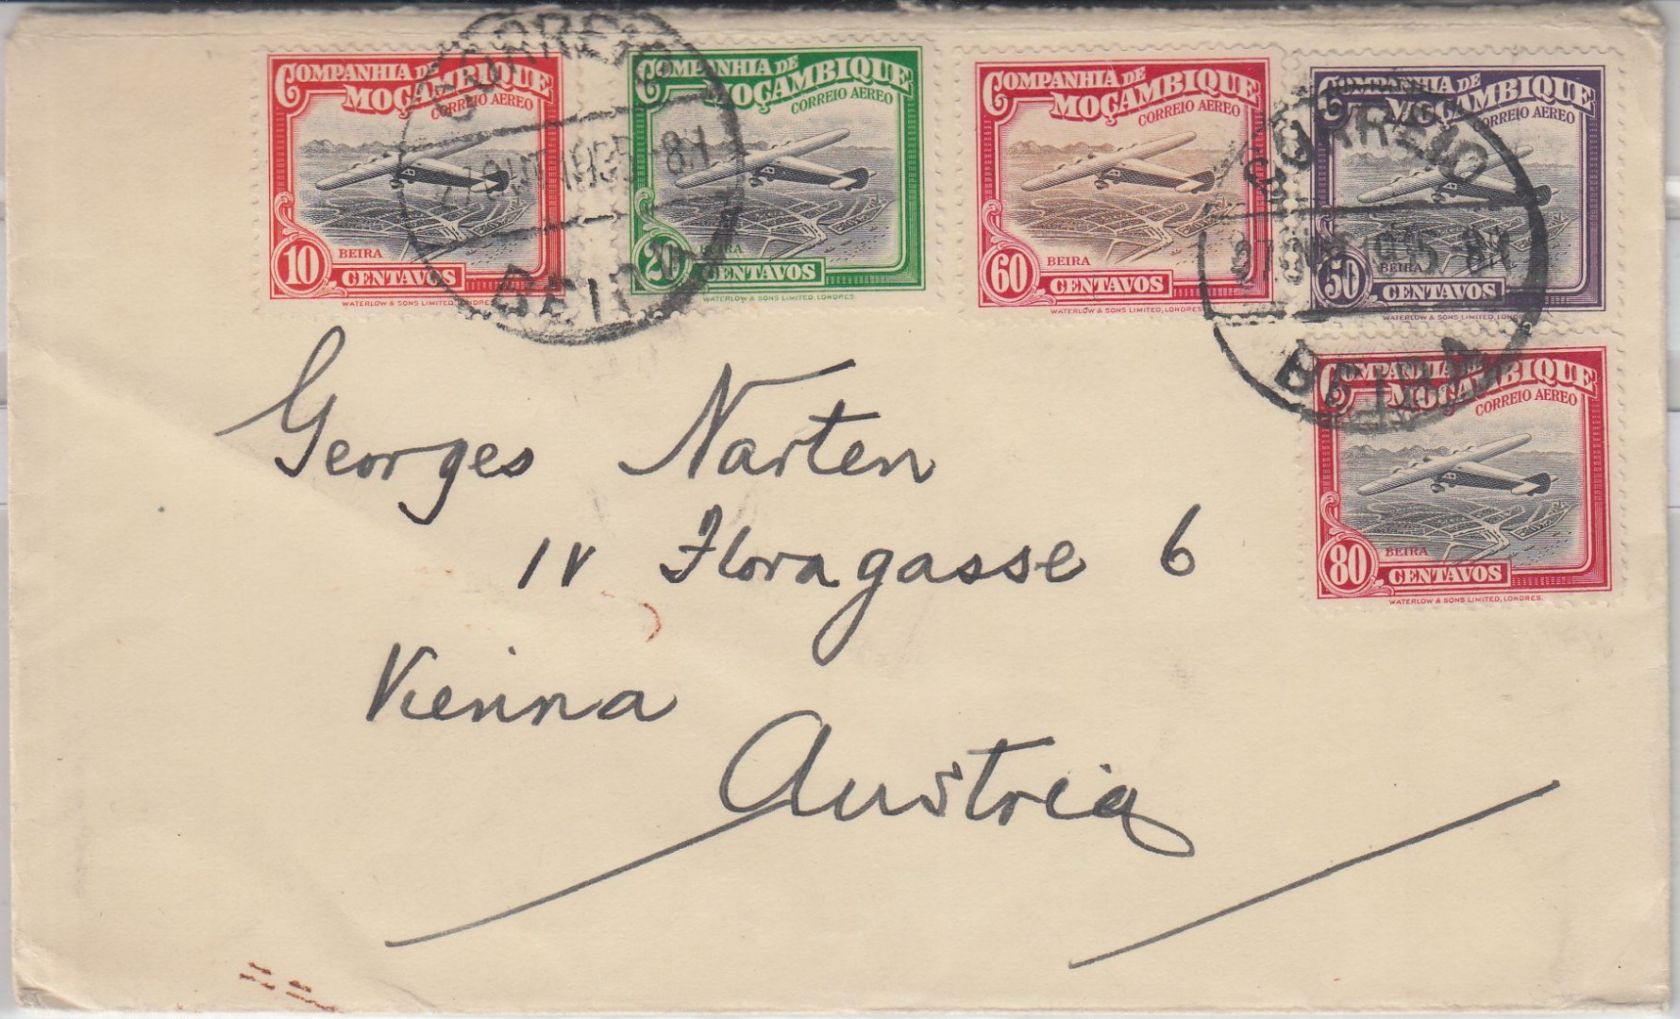 COMPANHIA DE
MOÇAMBIQUE
CORREIO AEREO
BEIRA
10 CENTAVOS
WATERLOW & SONS LIMITED, LONDRES.
COMPANHIA DE
MOÇAMBIQUE
CORREIO AEREO
BEIRA
20 CENTAVOS
WATERLOW & SONS LIMITED, LONDRES.
COMPANHIA DE
MOÇAMBIQUE
CORREIO AEREO
BEIRA
60 CENTAVOS
WATERLOW & SONS LIMITED, LONDRES
COMPANHIA DE
MOÇAMBIQUE
CORREIO AEREO
BEIRA
50 CENTAVOS
WATERLOW & SONS LIMITED, LONDRES
CORREIO
27 OUT 1935 8H
BEIRA
CORREIO
27 OUT 1935 8H
BEIRA
COMPANHIA DE
MOÇAMBIQUE
CORREIO AEREO
BEIRA
80 CENTAVOS
WATERLOW & SONS LIMITED, LONDRES.
Georges Narten
IV Floragasse 6
Vienna
Austria